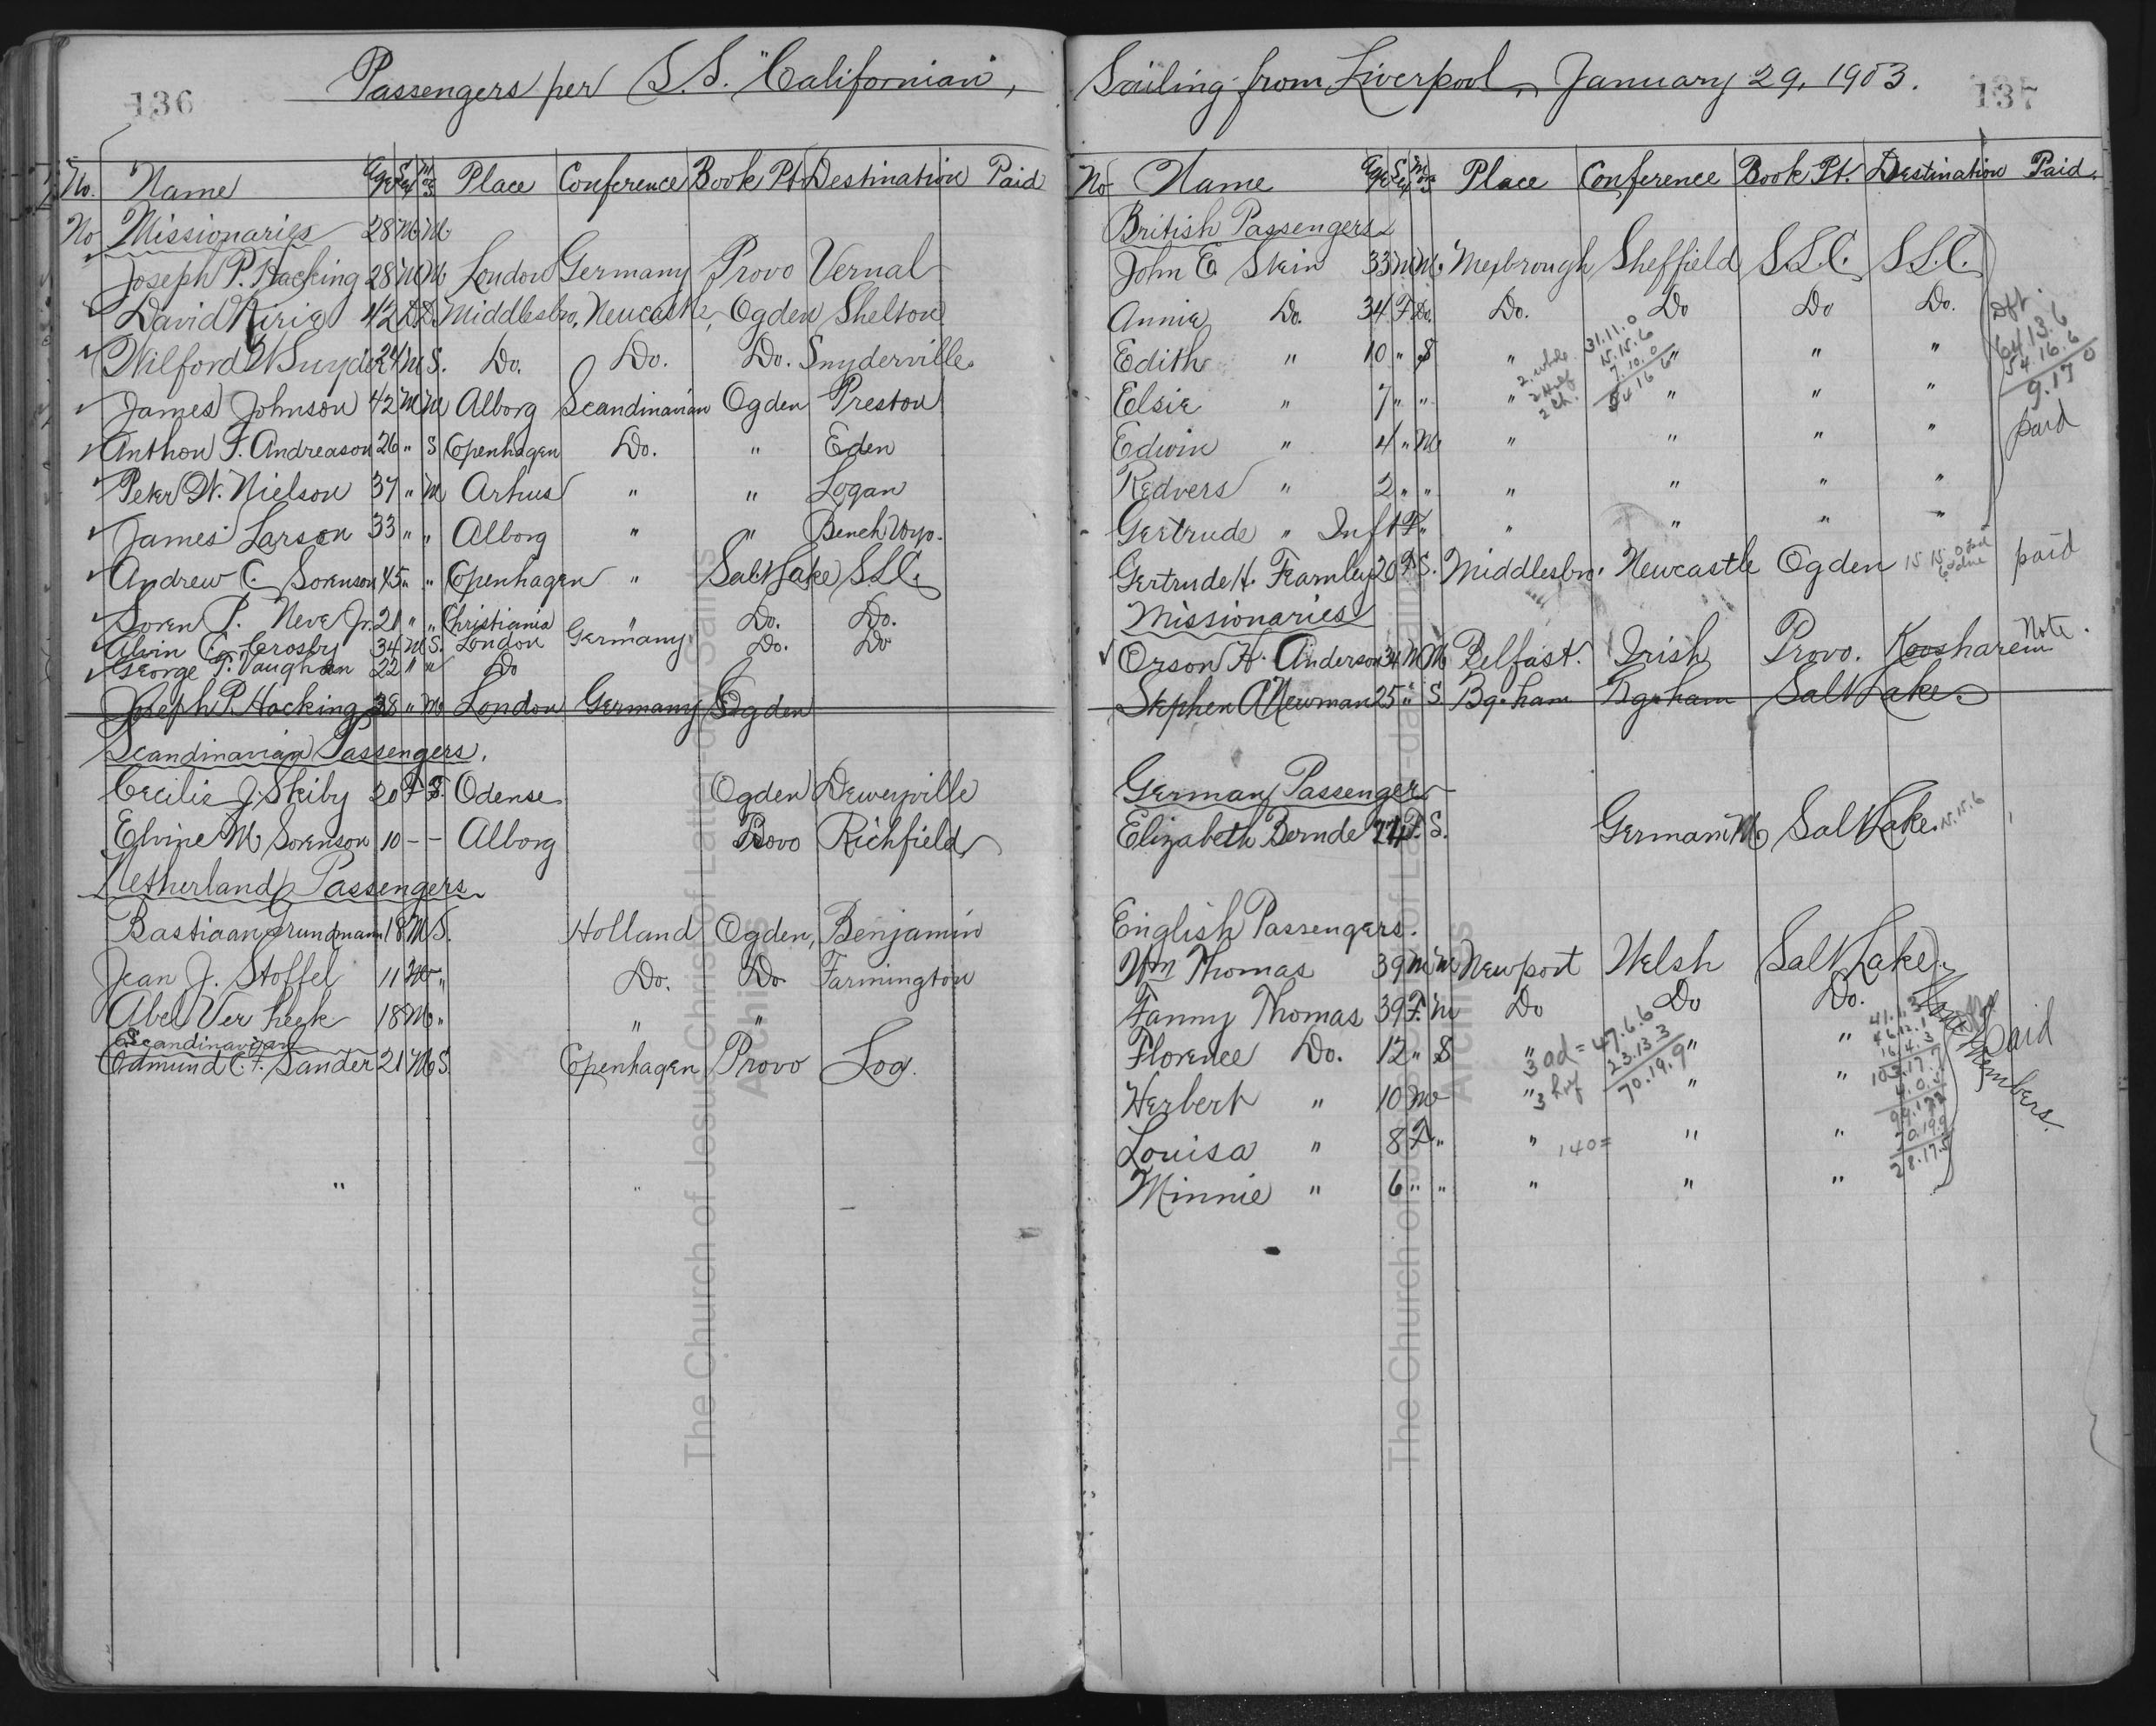 136
Passengers per S.S. "Californian",
No. Name Age Sex M or S Place Conference Book Pt. Destination Paid
No Missionaries 28 M M
Joseph P. Hacking 28 M M London Germany Provo Vernal
David Kirie 42 Middlesbro, Newcastle, Ogden Shelton
Wilford W Snyder 24 M S. Do. Do. Do. Snyderville
James Johnson 42 M M Alborg Scandinavian Ogden Preston
Anthon F. Andreason 26 " S Copenhagen Do. " Eden
Peter W. Nielson 37 " M Arhus " " Logan
James Larson 33 " " Alborg " " Bench Wyo.
Andrew C. Sorenson 45 " " Copenhagen " Salt Lake S.L.C.
Soren P. Neve Jr. 21 " " Christiania " Do. Do.
Alvin C. Crosby 34 M S. London Germany Do. Do
George T. Vaughan 22 " " Do
Joseph P. Hacking 28 " M London Germany Ogden
Scandinavian Passengers.
Cecilie J. Skiby 20 F S. Odense Ogden Deweyville
Elvine M Sorenson 10 - - Alborg Provo Richfield
Netherland Passengers
Bastiaan Grundmann 18 M S. Holland Ogden, Benjamin
Jean J. Stoffel 11 M " Do. Do Farmington
Abel Ver heek 18 M " " "
Scandinavian
Edmund C. F. Sander 21 M S Copenhagen Provo Loa.
" "
137
Sailing from Liverpool, January 29, 1903.
No Name Age Sex M or S Place Conference Book Pt. Destination Paid.
British Passengers
John E. Skin 33 M M. Mexbrough Sheffield S.L.C. S.L.C.
Annie Do. 34 F. Do. Do. Do Do Do. Dft.
Edith " 10 " S " 31.11.0 " " " 64.13.6
2. whole 15.15.6 54.16.6
2 Half 7.10.0 9.17 0
2 ch. 54 16 6
Elsie " 7 " " " " " "
paid
Edwin " 4 " M " " " "
Redvers " 2 " " " " " "
Gertrude " Inft F " " " " "
Gertrude H. Fearnley 20 F S. Middlesbro. Newcastle Ogden 15 15 0 paid
6 due
Missionaries
Orson H. Anderson 34 M M Belfast. Irish Provo. Koosharem Note.
Stephen A Newman 25 " S Bg.ham Bg.ham Salt Lake
German Passenger
Elizabeth Bernde 74 F. S. German M Salt Lake 15.15.6
English Passengers.
Wm Thomas 39 M M Newport Welsh Salt Lake
Fanny Thomas 39 F. M Do Do Do.
Florence Do. 12 " S " " "
3 ad = 47.6.6
3 hlf 23.13.3
70.19.9
Herbert " 10 M " " "
Louisa " 8 F " " 140= " "
Minnie " 6 " " " " "
103.17.7
70.19.9
28.17.5
Members.
paid
The Church of Jesus Christ of Latter-day Saints
Archives
The Church of Jesus Christ of Latter-day Saints
Archives